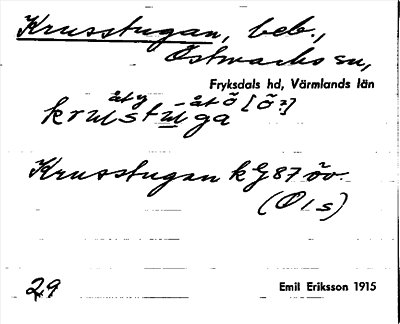 Krusstugan, beb.,
Östmarks sn,
Fryksdals hd, Värmlands län
krustuga
Krusstugan
(Ols)
29
Emil Eriksson 1915